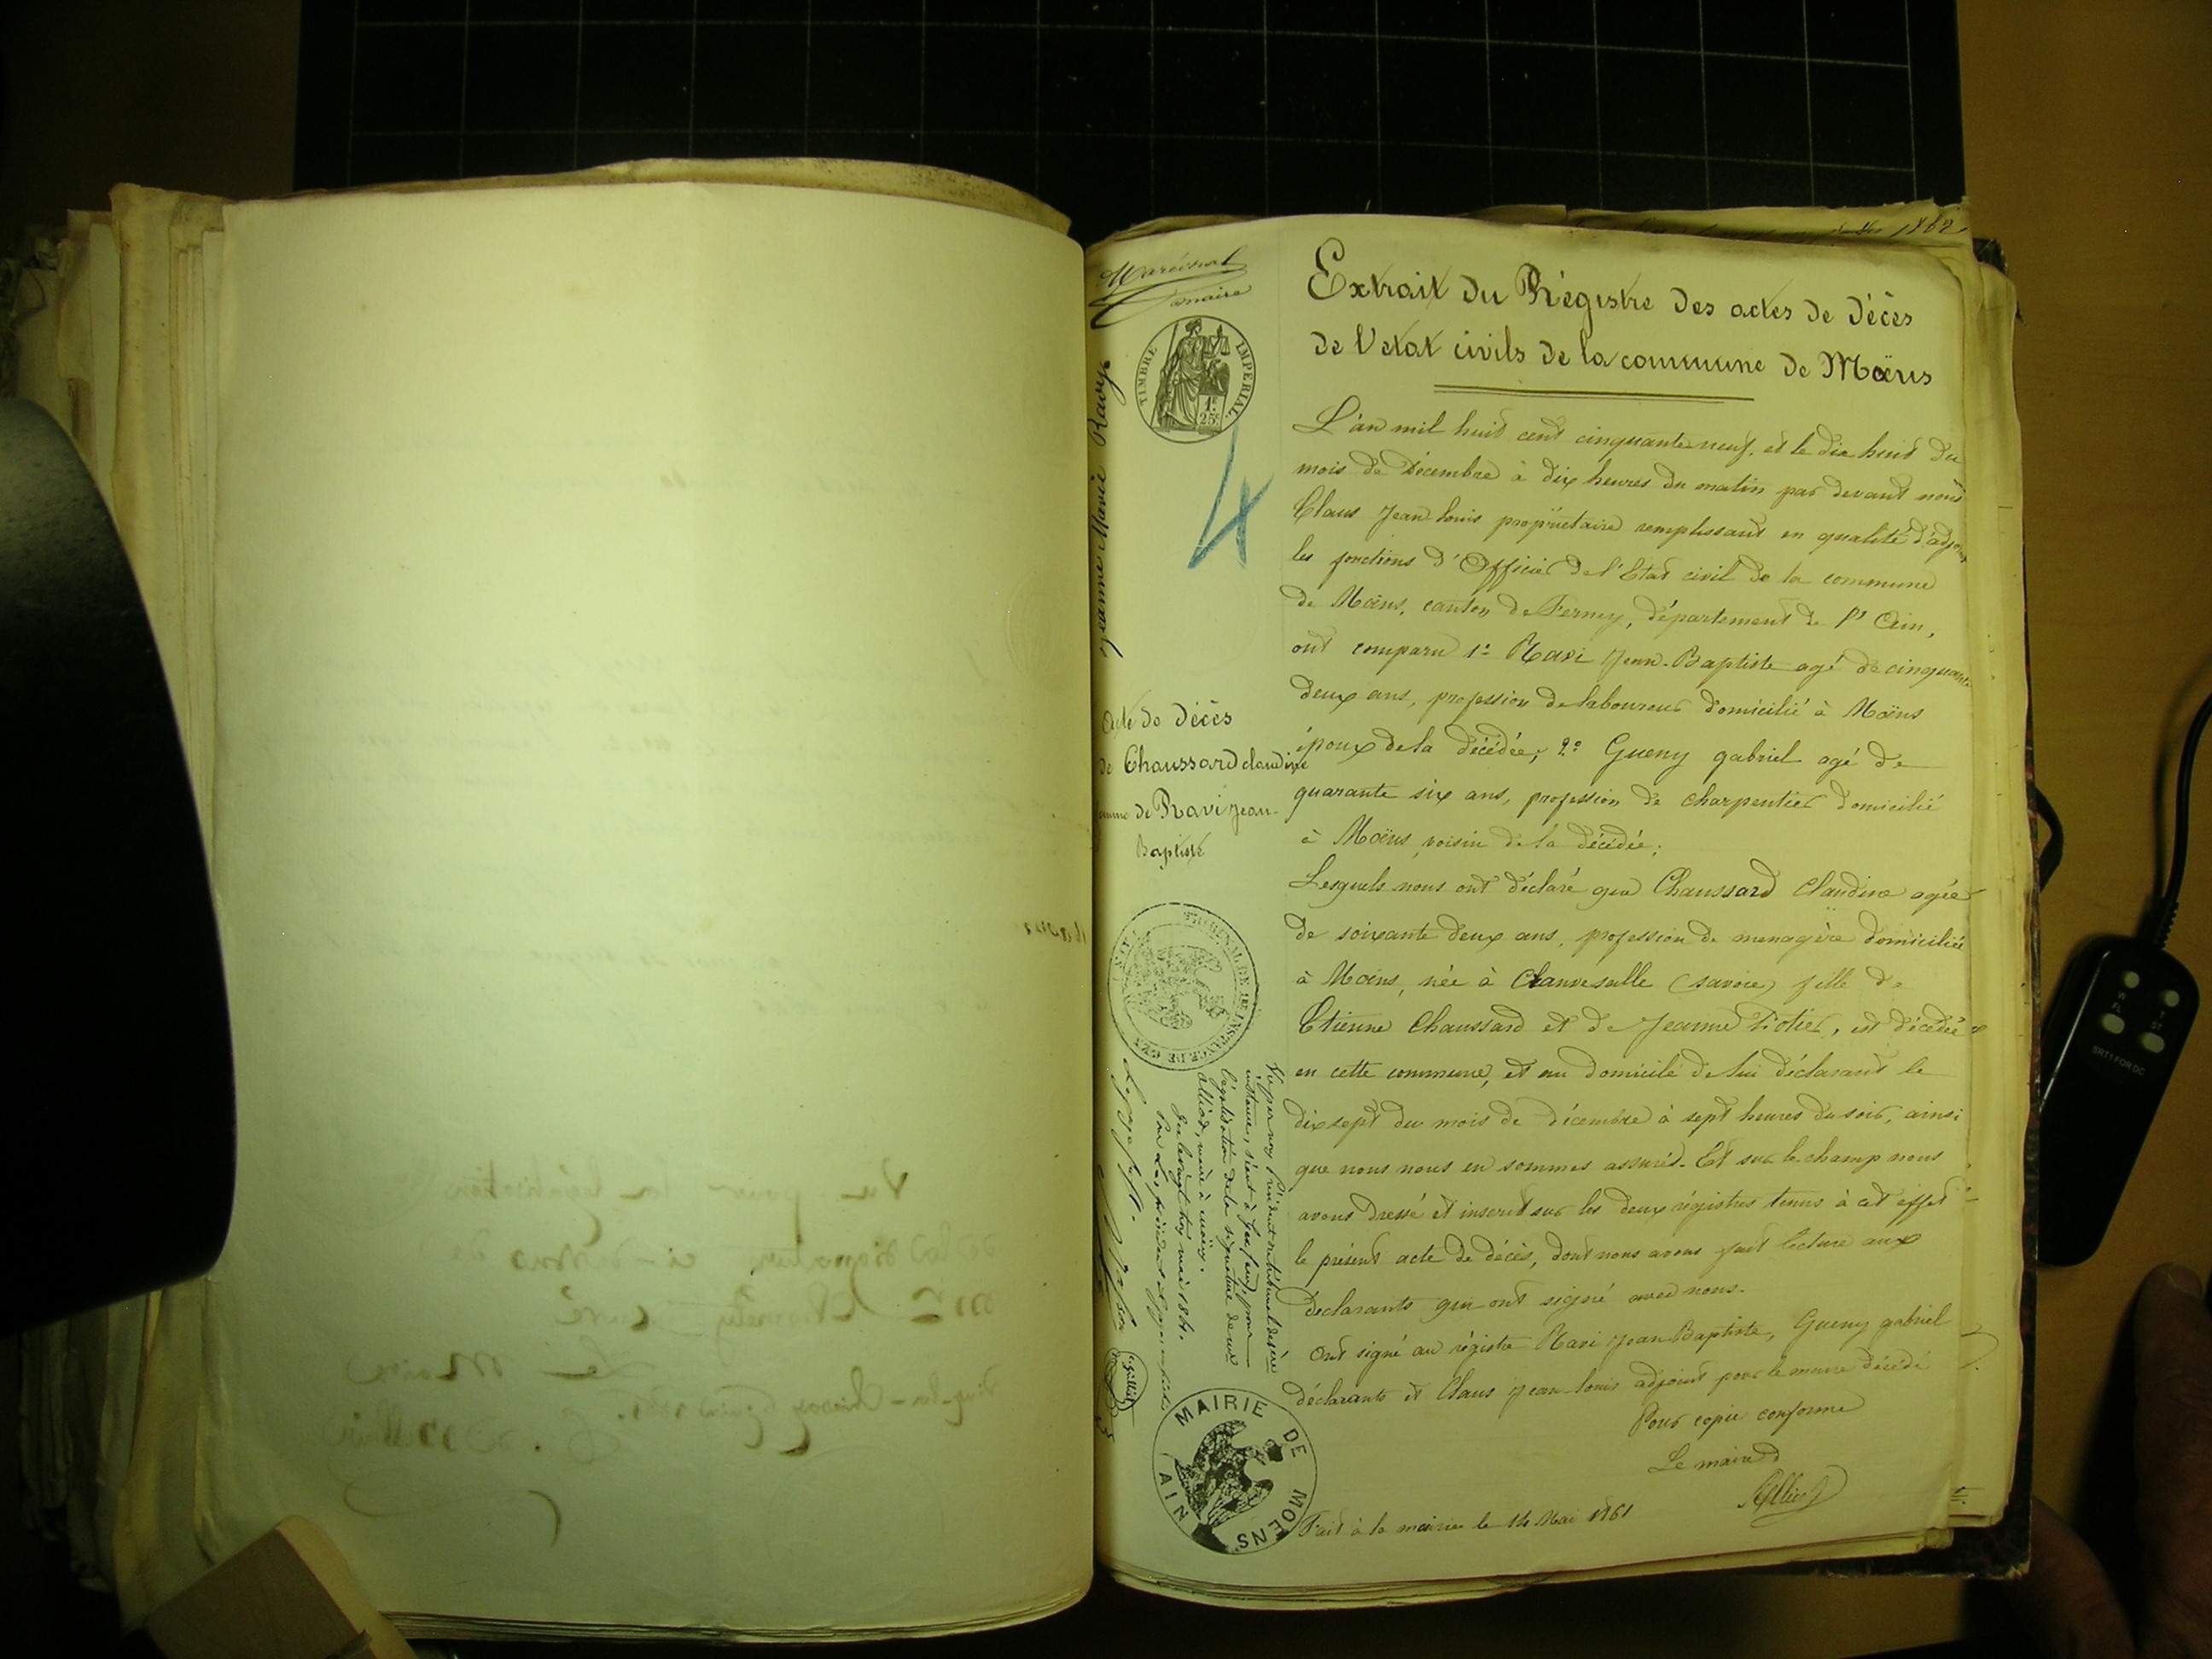 1862
Maréchal
Jeanne Marie Ravy
TIMBRE IMPERIAL
1f 25c
4
Extrait du Régistre des actes de décès
de l'etat civils de la commune de Moëns
Acte de décès
de Chaussard claudine
femme de Ravi Jean-
Baptiste
L'an mil huit cent cinquante neuf, et le dix huit du
mois de Décembre à dix heures du matin par devant nous
Claus Jean Louis propriétaire remplissant en qualité d'adjoint
les fonctions d'Officier de l'Etat civil de la commune
de Moëns, canton de Ferney, département de l'Ain,
ont comparu 1º Ravi Jean-Baptiste agé de cinquante
deux ans, profession de laboureur domicilié à Moëns
époux de la décédée; 2º Gueny gabriel agé de
quarante six ans, profession de charpentier domicilié
à Moëns, voisin de la décédée;
Lesquels nous ont déclaré que Chaussard Claudine agée
de soixante deux ans, profession de menagère domiciliée
à Moëns, née à (savoie) fille de
Etienne Chaussard et de Jeanne, est décédée
en cette commune, et au domicile de lui déclarant le
dix sept du mois de décembre à sept heures du soir, ainsi
que nous nous en sommes assurés. Et sur le champ nous
avons dressé et inscrit sur les deux régistres tenus à cet effet
le présent acte de décès, dont nous avons fait lecture aux
déclarants qui ont signé avec nous.
Ont signé au régistre Ravi Jean Baptiste, Gueny gabriel
déclarants et Claus Jean Louis adjoint pour le maire décédé
Pour copie conforme
Le maire
Alliod
Fait à la mairie le 14 Mai 1861
TRIBUNAL DE 1ERE INSTANCE DE GEX
Vu par nous Président du tribunal de 1ère
instance, séant à Gex, pour
légalisation de la signature de Mr
Alliod, maire à Moëns.
Gex le vingt trois mai 1861.
MAIRIE DE MOENS
AIN
Vu pour la légalisation
de la signature ci-dessus de
Mr curé
Le Maire